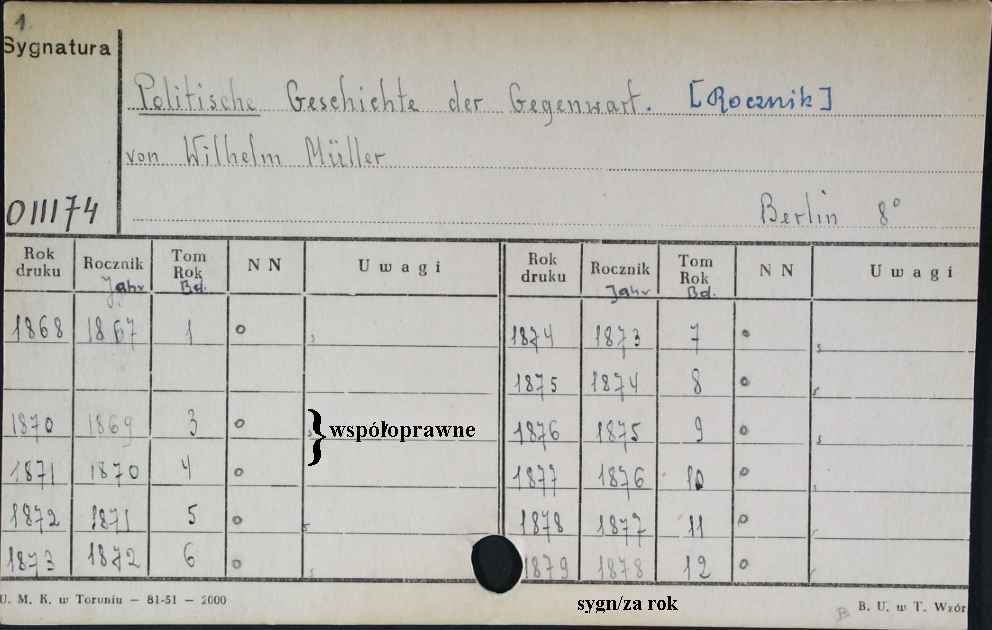 1.
Sygnatura
Politische Geschichte der Gegenwart. [Rocznik]
von Wilhelm Müller
011174
Berlin 8°
Rok druku Rocznik Jahr Tom Rok Bd. N N Uwagi Rok druku Rocznik Jahr Tom Rok Bd. N N Uwagi
1868 1867 1 o 1874 1873 7 o
1875 1874 8 o
1870 1869 3 o } współoprawne 1876 1875 9 o
1871 1870 4 o 1877 1876 10 o
1872 1871 5 o 1878 1877 11 o
1873 1872 6 o 1879 1878 12 o
U. M. K. w Toruniu — 81-51 — 2000
sygn/za rok
B B. U. w T. Wzór